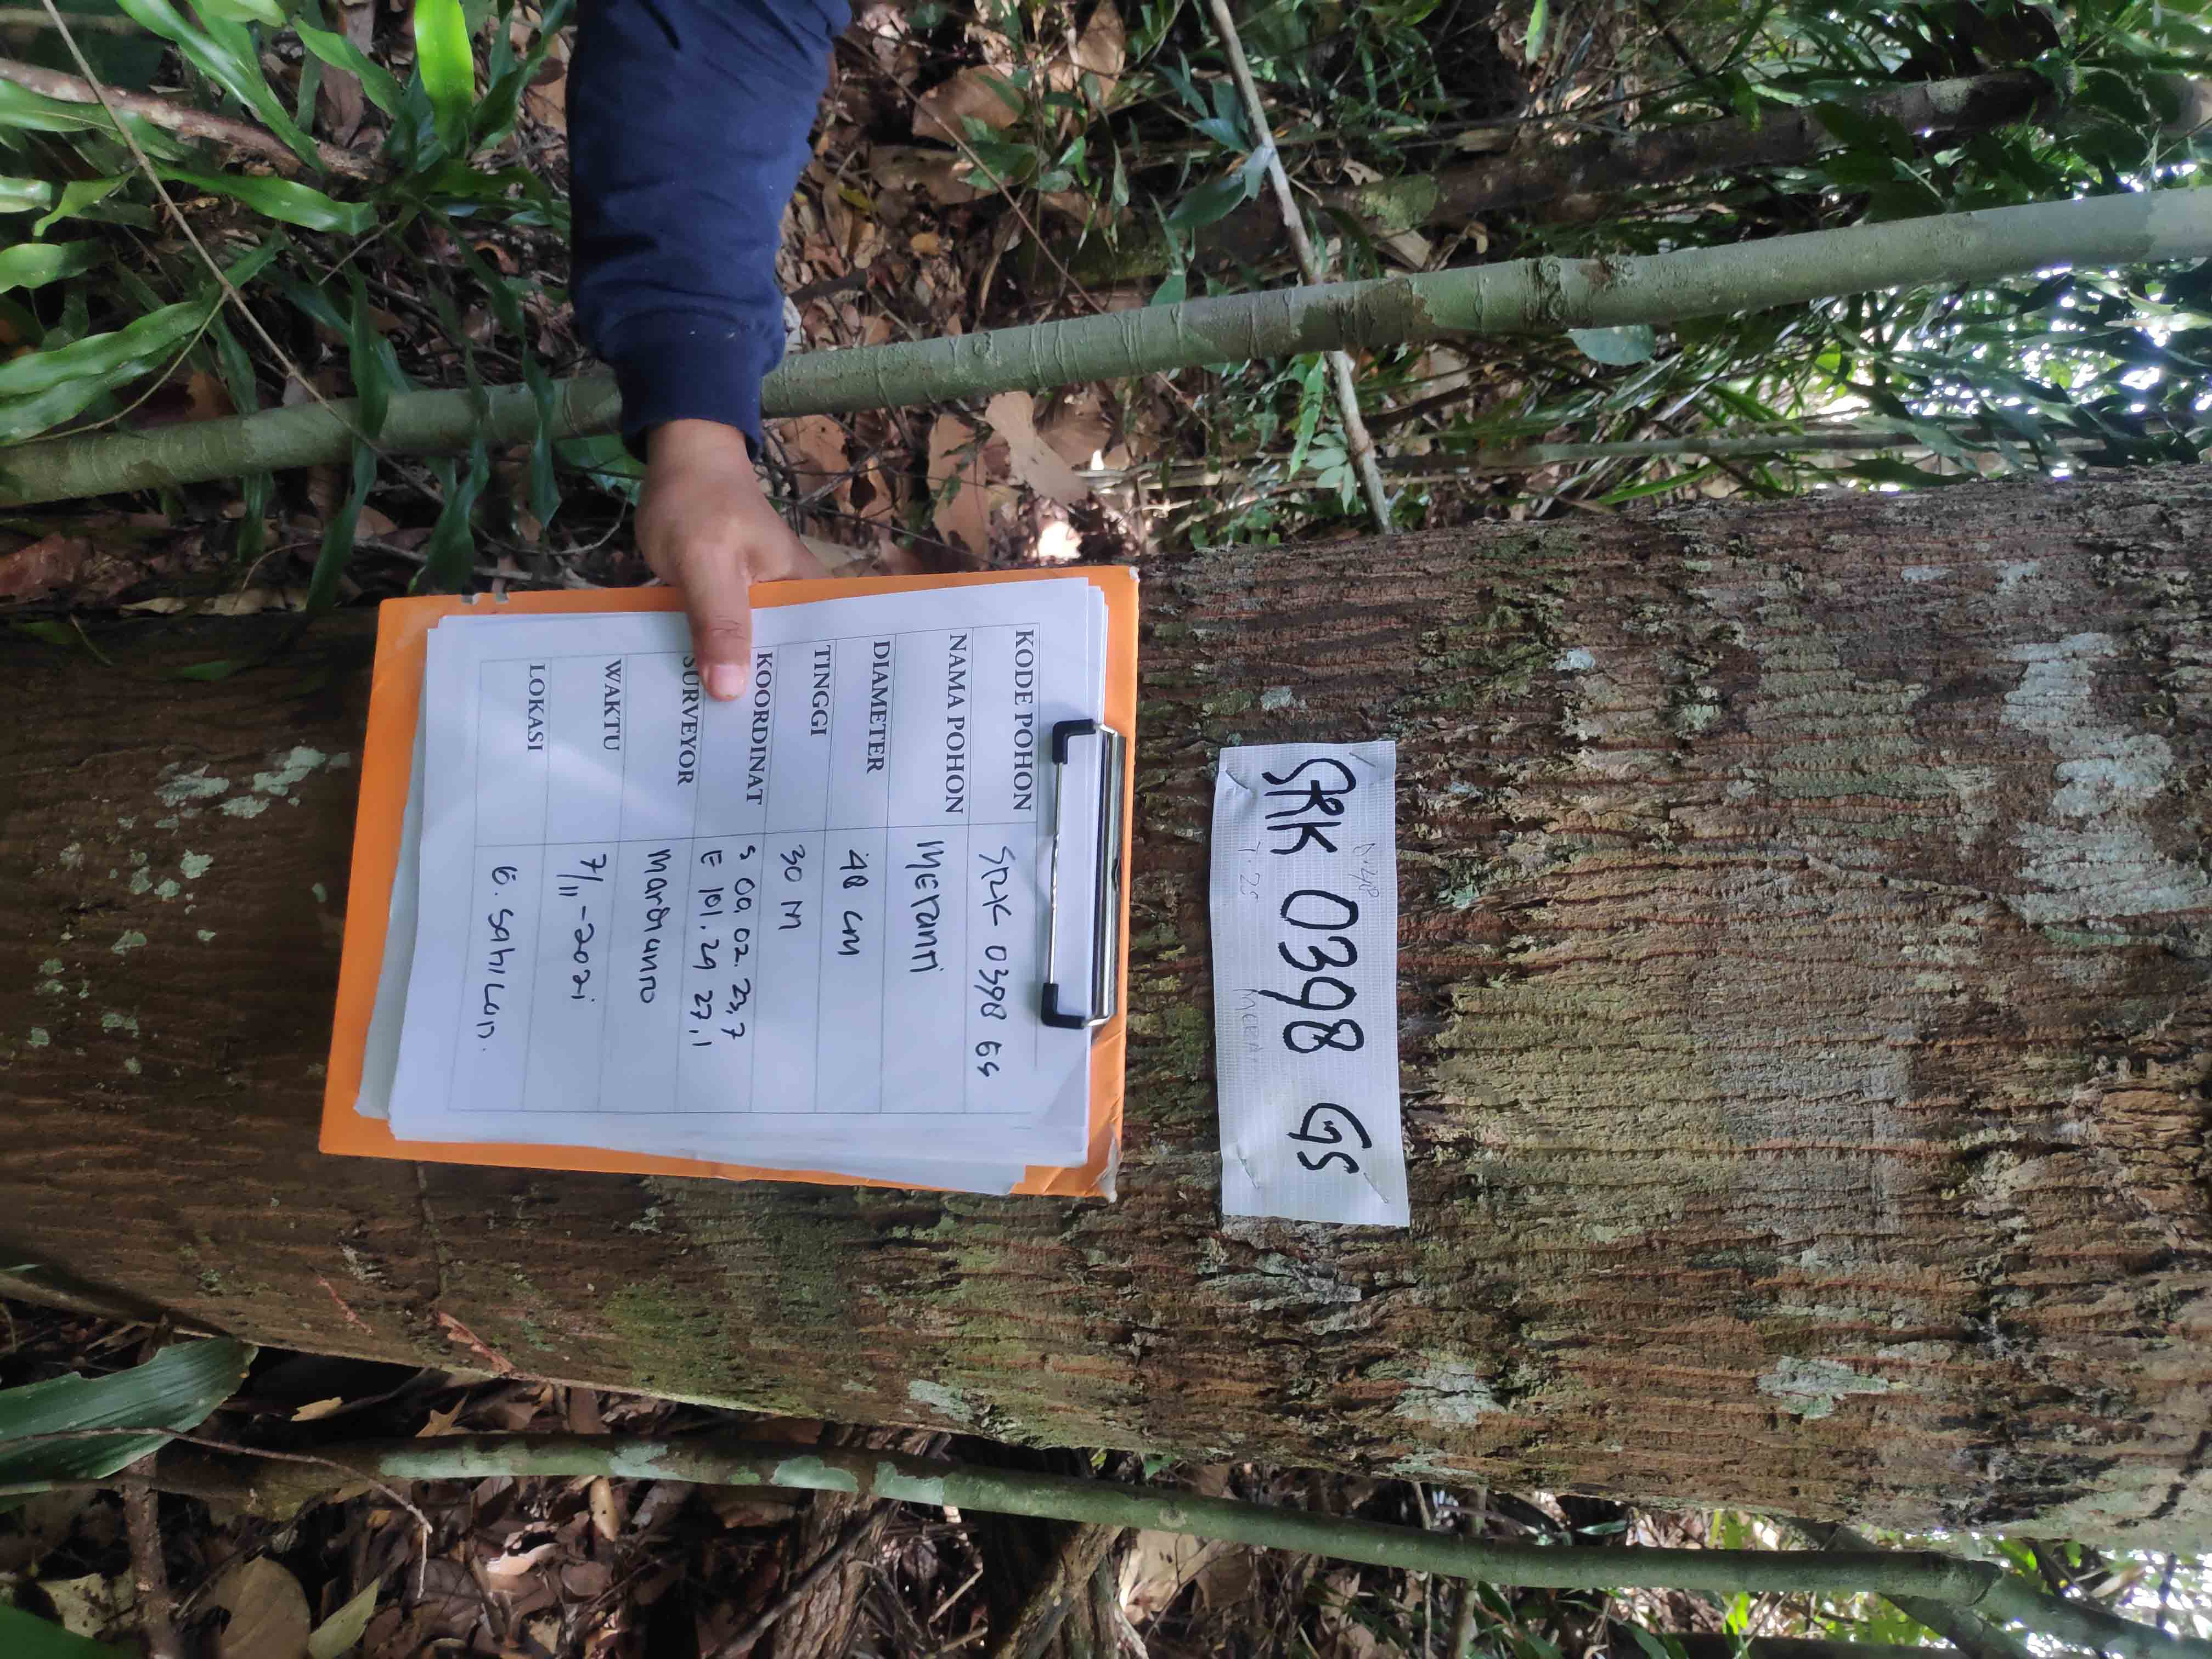 SRK 0398 GS
T. 25
KODE POHON SRK 0398 GS
NAMA POHON Meranti
DIAMETER 48 cm
TINGGI 30 M
KOORDINAT S 00. 02. 23,7
E 101. 29 27,1
SURVEYOR Mardianto
WAKTU 7/11-2021
LOKASI G. Sahilan.